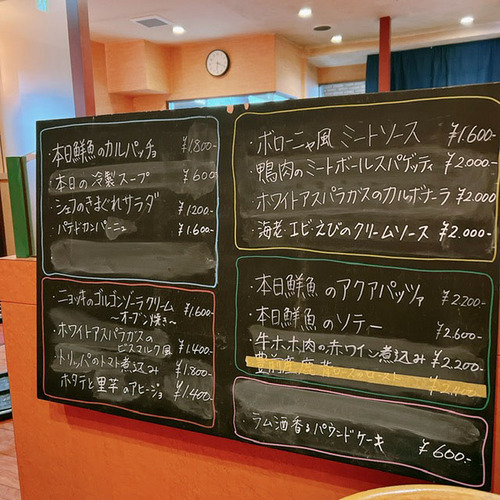 ・本日鮮魚のカルパッチョ ¥1.800-
・本日の冷製スープ ¥600
・シェフのきまぐれサラダ ¥1.200-
・パテドカンパーニュ ¥1.600-
・ニョッキのゴルゴンゾーラクリーム ¥1.600-
〜オーブン焼き〜
・ホワイトアスパラガスの
ビスマルク風 ¥1.400-
・トリッパのトマト煮込み ¥1.800-
ホタテと里芋のアヒージョ ¥1.400-
・ボローニャ風 ミートソース ¥1.600-
・鴨肉のミートボールスパゲッティ ¥2.000-
・ホワイトアスパラガスのカルボナーラ ¥2.000
・海老・エビ・えびのクリームソース ¥2.000-
・本日鮮魚のアクアパッツァ ¥2200-
・本日鮮魚のソテー ¥2.600-
・牛ホホ肉の赤ワイン煮込み ¥2.200-
豊前産 ¥2.400-
・ラム酒香るパウンドケーキ ¥600-